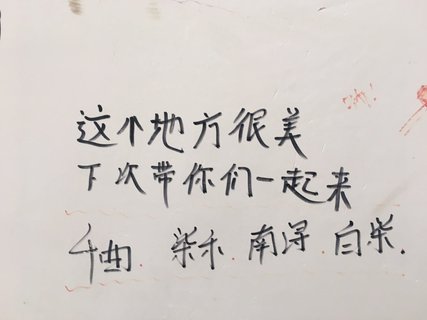 这个地方很美
下次带你们一起来
千曲. 柴禾. 南浔. 白柴.